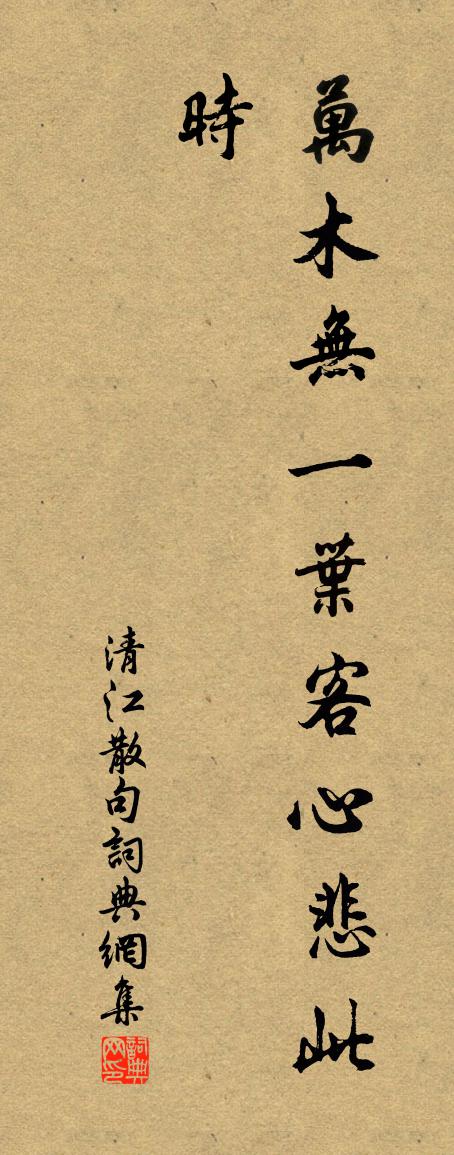 萬木無一葉客心悲此
時
清江散句詞典網集
詞典
网印